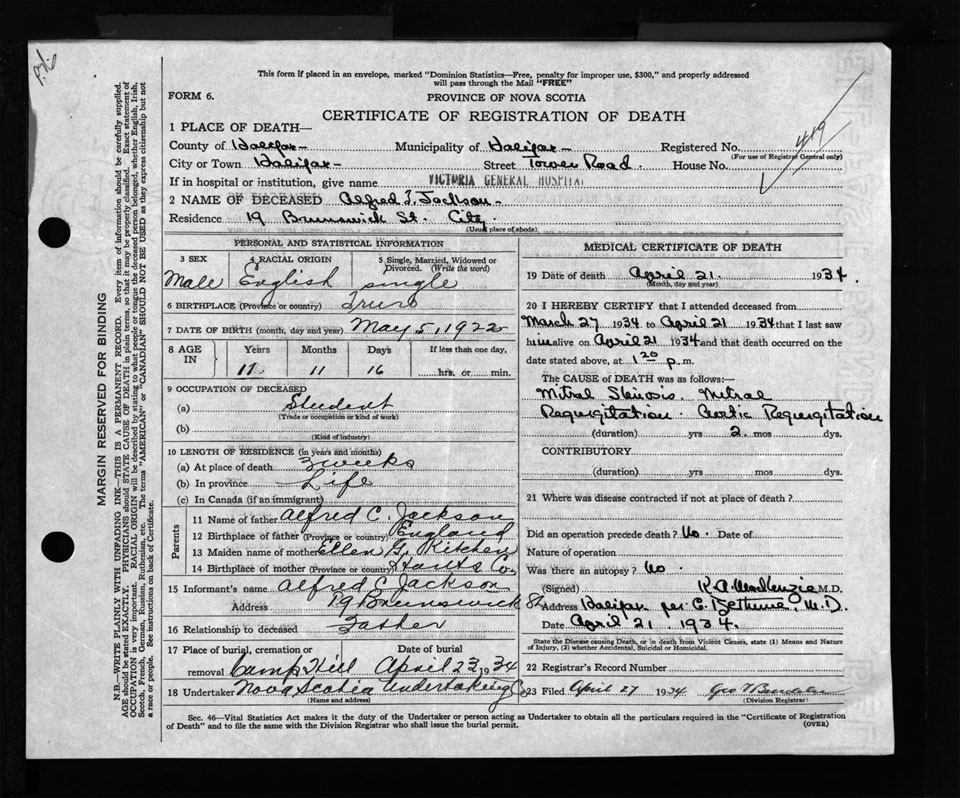 P.76
This form if placed in an envelope, marked "Dominion Statistics—Free, penalty for improper use, $300," and properly addressed
will pass through the Mail "FREE"
FORM 6. PROVINCE OF NOVA SCOTIA
CERTIFICATE OF REGISTRATION OF DEATH
1 PLACE OF DEATH—
County of Halifax- Municipality of Halifax- Registered No. 419
(For use of Registrar General only)
City or Town Halifax- Street Tower Road. House No.
If in hospital or institution, give name VICTORIA GENERAL HOSPITAL
2 NAME OF DECEASED Alfred I. Jackson-
Residence 19 Brunswick St. City.
(Usual place of abode)
PERSONAL AND STATISTICAL INFORMATION
3 SEX 4 RACIAL ORIGIN 5 Single, Married, Widowed or
Divorced. (Write the word)
Male English single
6 BIRTHPLACE (Province or country) Truro
7 DATE OF BIRTH (month, day and year) May 5, 1922
8 AGE IN Years Months Days If less than one day,
11 11 16 hrs. or min.
9 OCCUPATION OF DECEASED
(a) Student
(Trade or occupation or kind of work)
(b)
(Kind of industry)
10 LENGTH OF RESIDENCE (in years and months)
(a) At place of death 3 weeks
(b) In province Life
(c) In Canada (if an immigrant)
Parents
11 Name of father Alfred C. Jackson
12 Birthplace of father (Province or country) England
13 Maiden name of mother Ellen G. Kitchen
14 Birthplace of mother (Province or country) Hants Co.
15 Informant's name Alfred C. Jackson
Address 19 Brunswick St
16 Relationship to deceased Father
17 Place of burial, cremation or Date of burial
removal Camp Hill April 23, 1934
18 Undertaker Nova Scotia Undertaking Co
(Name and address)
MEDICAL CERTIFICATE OF DEATH
19 Date of death April 21. 1934.
(Month, day and year)
20 I HEREBY CERTIFY that I attended deceased from
March 27 1934 to April 21 1934 that I last saw
him alive on April 21 1934 and that death occurred on the
date stated above, at 1 20 p. m.
The CAUSE of DEATH was as follows:—
Mitral Stenosis. Mitral
Regurgitation. Aortic Regurgitation
(duration) yrs 2. mos dys.
CONTRIBUTORY
(duration) yrs mos dys.
21 Where was disease contracted if not at place of death?
Did an operation precede death? No. Date of
Nature of operation
Was there an autopsy? No
(Signed) K. A. MacKenzie M.D.
Address Halifax per C. Bethune, M.D.
Date April 21 1934.
State the Disease causing Death, or in death from Violent Causes, state (1) Means and Nature
of Injury, (2) whether Accidental, Suicidal or Homicidal.
22 Registrar's Record Number
23 Filed April 27 1934 Geo
(Division Registrar)
Sec. 46—Vital Statistics Act makes it the duty of the Undertaker or person acting as Undertaker to obtain all the particulars required in the "Certificate of Registration
of Death" and to file the same with the Division Registrar who shall issue the burial permit. (OVER)
MARGIN RESERVED FOR BINDING
N.B.—WRITE PLAINLY WITH UNFADING INK—THIS IS A PERMANENT RECORD. Every item of information should be carefully supplied.
AGE should be stated EXACTLY. PHYSICIANS should STATE CAUSE OF DEATH in plain terms, so that it may be properly classified. Exact statement of
OCCUPATION is very important. RACIAL ORIGIN will be described by stating to what people or tongue the deceased person belonged, whether English, Irish,
Scotch, French, German, Russian, Ruthenian, etc. The terms "AMERICAN" or "CANADIAN" SHOULD NOT BE USED as they express citizenship but not
a race or people. See instructions on back of Certificate.